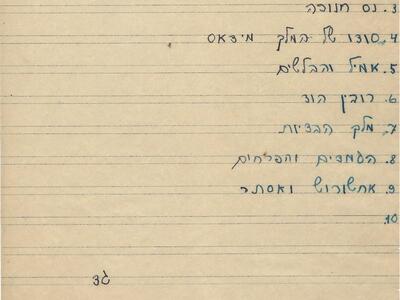 3. נס חנוכה
4. סודו של המלך מידאס
5. אמיל והבלשים
6. רובין הוד
7. מלך הבדיות
8. העמדים והפרחים
9. אחשורוש ואסתר
10.
גד